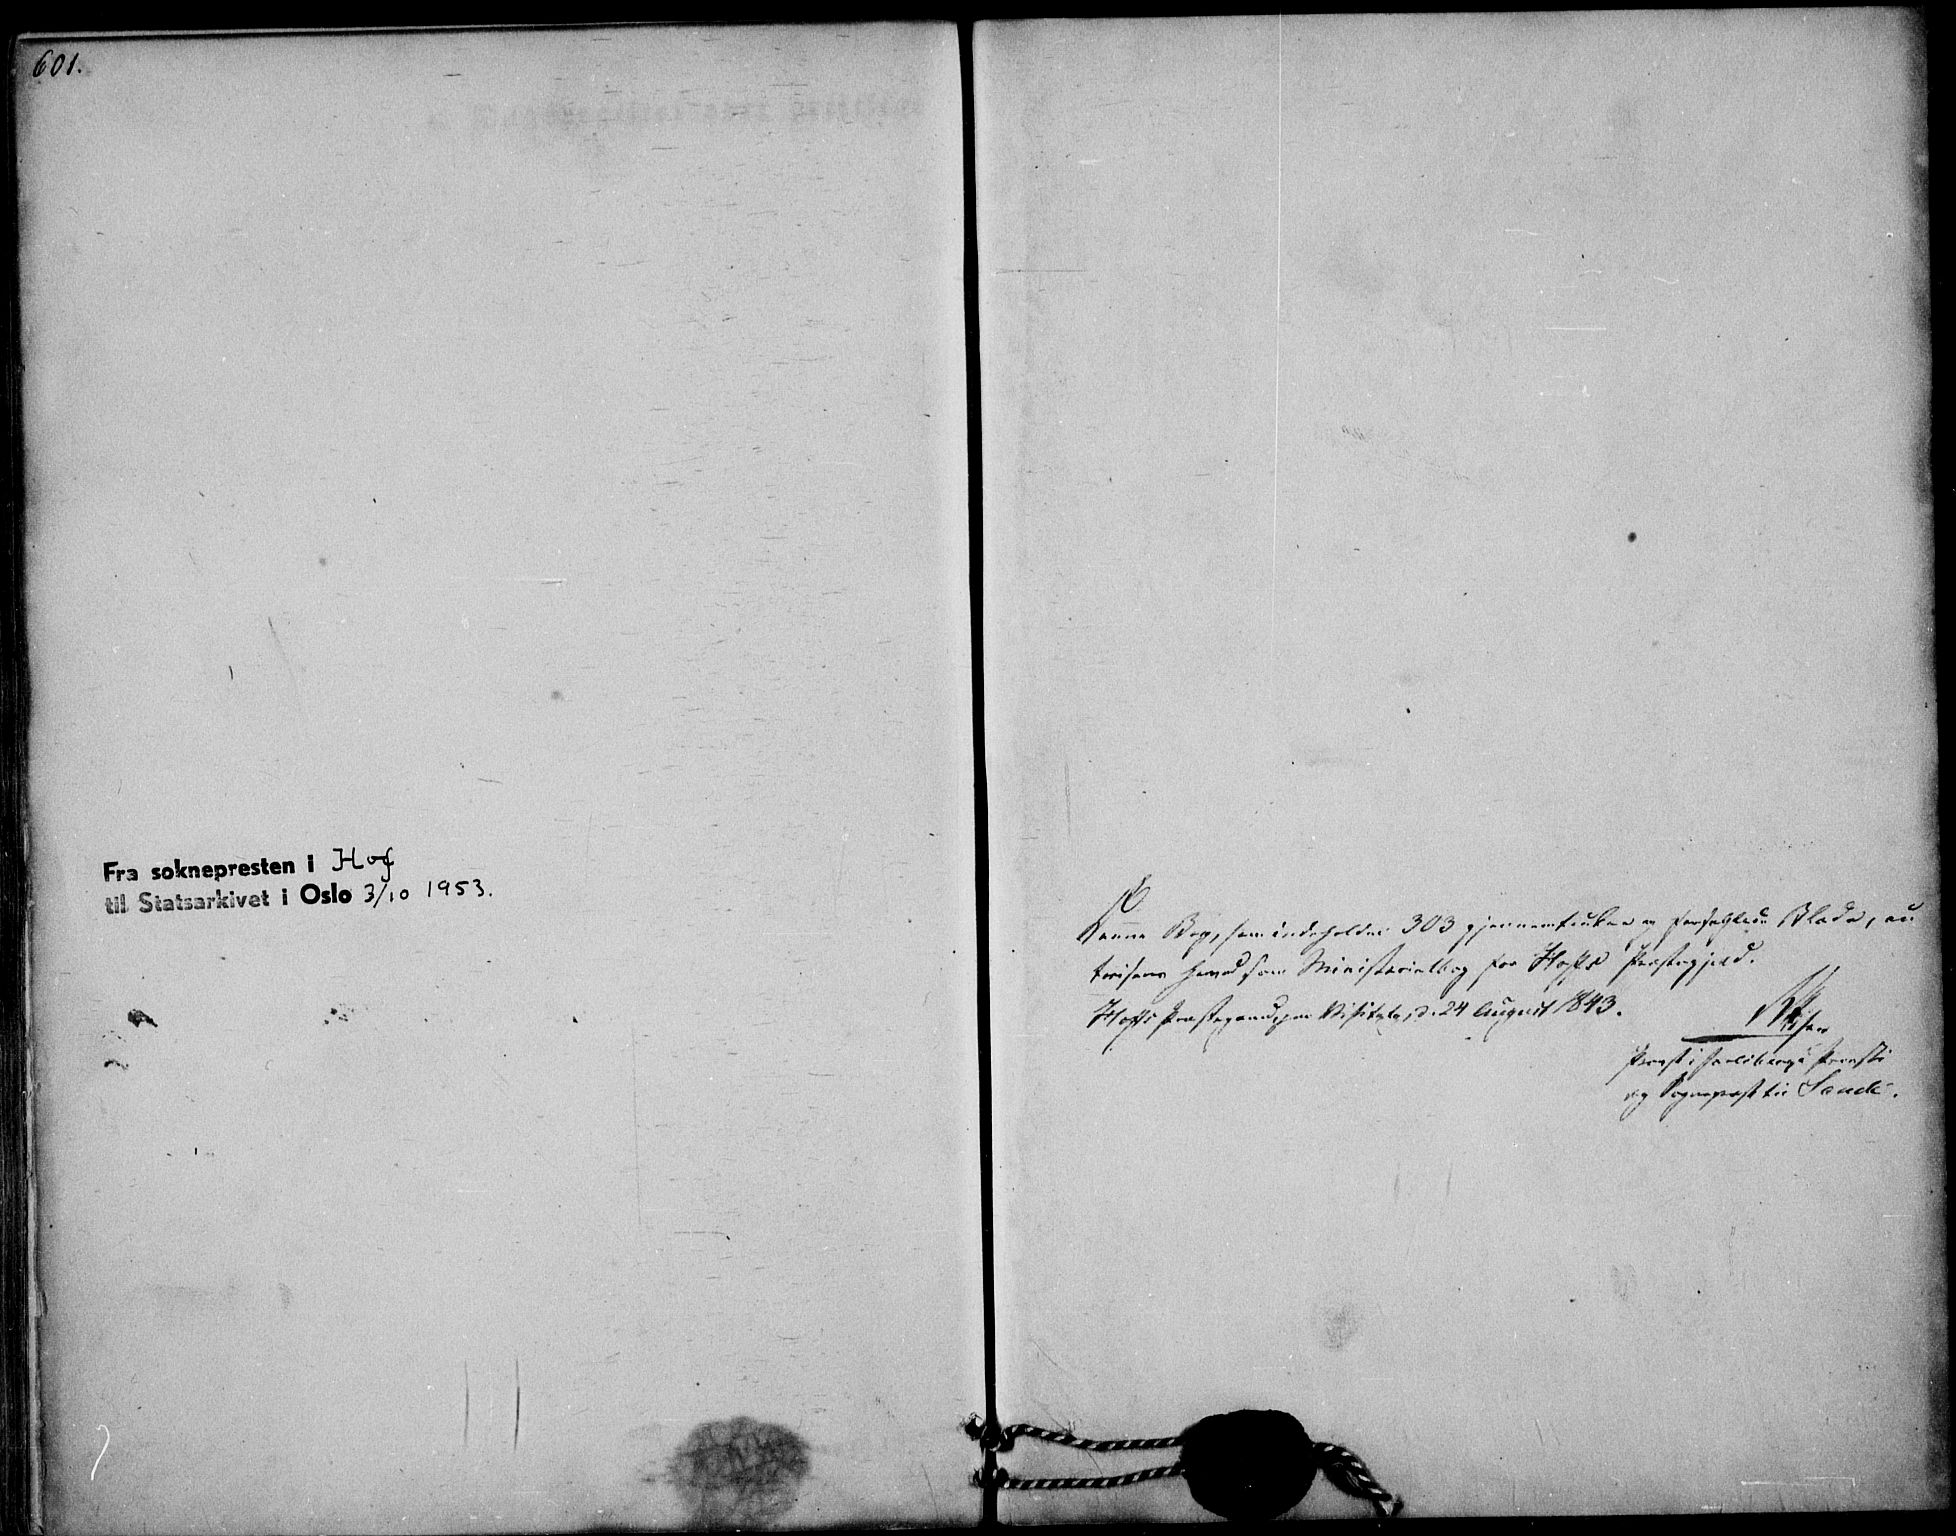 601.
Fra soknepresten i Hof
til Statsarkivet i Oslo 3/10 1953.
Denne Bog, som indeholder 303 gjennemtrukne og forseglede Blade, au
toriseres herved som Ministerialbog for Hofs Præstegjeld.
Hofs Præstegaard Visitats, d. 24 August 1843.
Provst i Jarlsbergs Provsti
og Sognepræst til Sande.